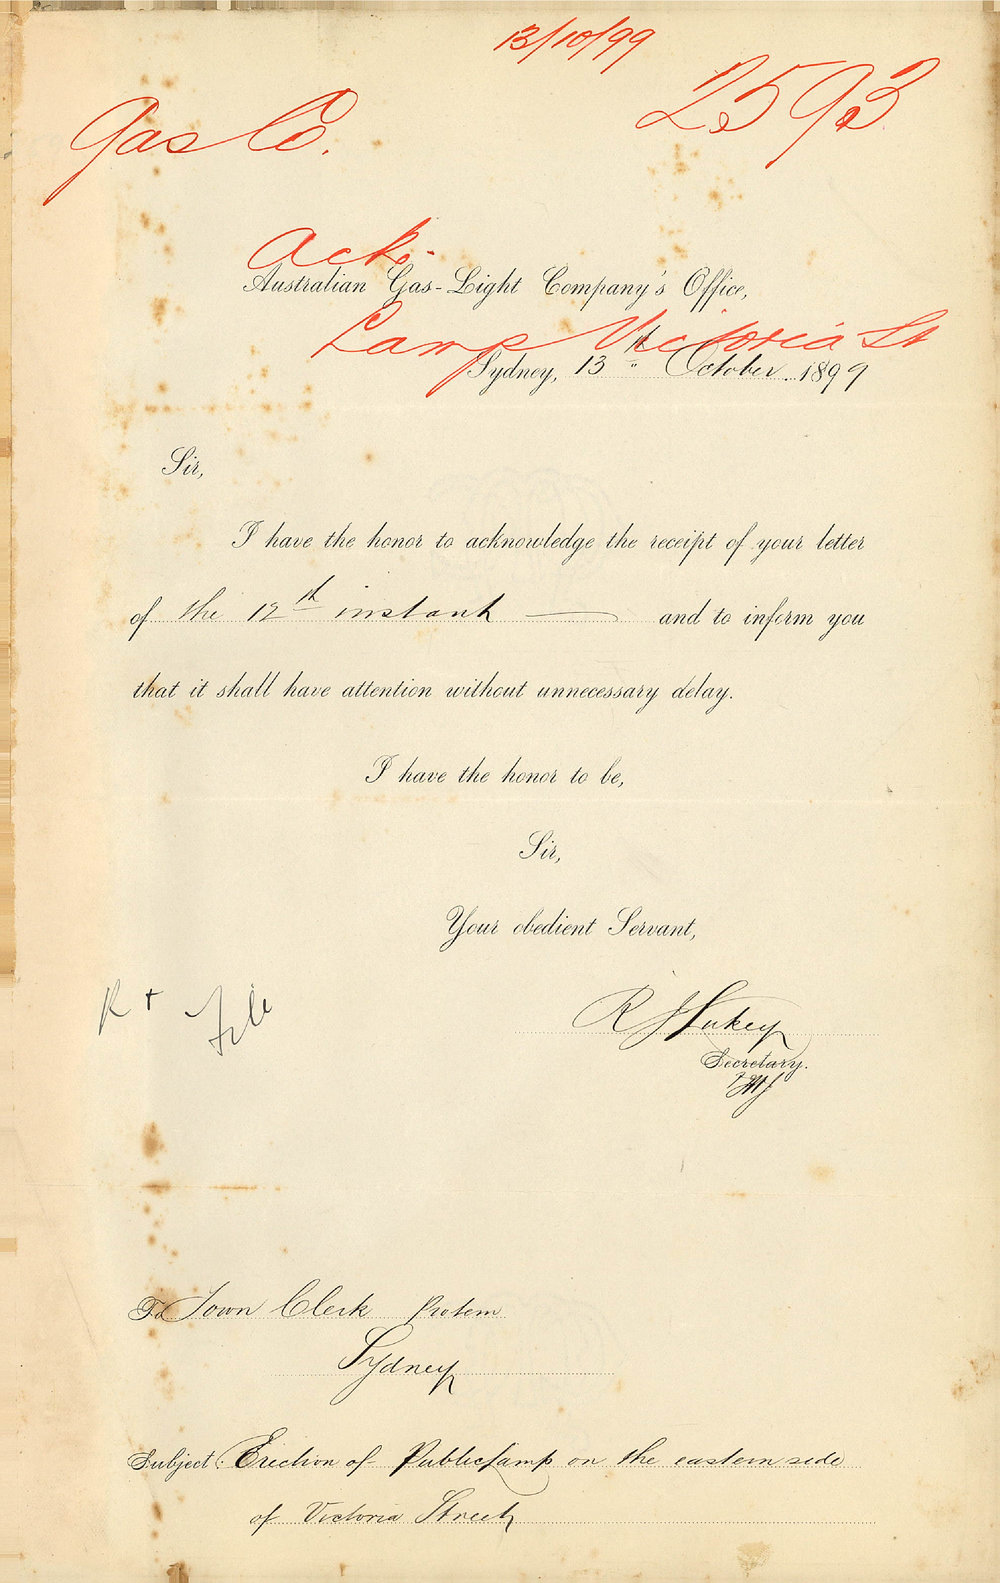 13/10/99
2593
Gas Co.
Ack.
Australian Gas-Light Company's Office,
Lamp Victoria St
Sydney, 13th October 1899
Sir,
I have the honor to acknowledge the receipt of your letter
of the 12th instant — and to inform you
that it shall have attention without unnecessary delay.
I have the honor to be,
Sir,
Your obedient Servant,
R J Lukey
Secretary.
File
To Town Clerk Protem
Sydney
Subject: Erection of Public Lamp on the eastern side
of Victoria Street